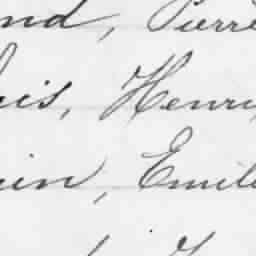 nd, Pierre
is, Henri
in, Emil